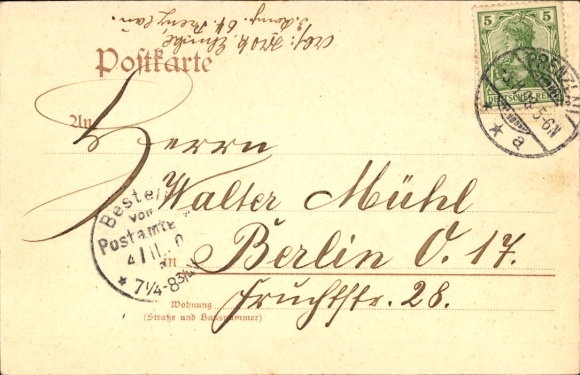 Postkarte
An
Herrn
Walter Mühl
in
Berlin O. 17.
Fruchtstr. 28.
Wohnung
(Straße und Hausnummer)
5 5
DEUTSCHES REICH
PRENZLAU
5-6N
* * a
Bestellt
vom
Postamte
* 7¼-8¾V